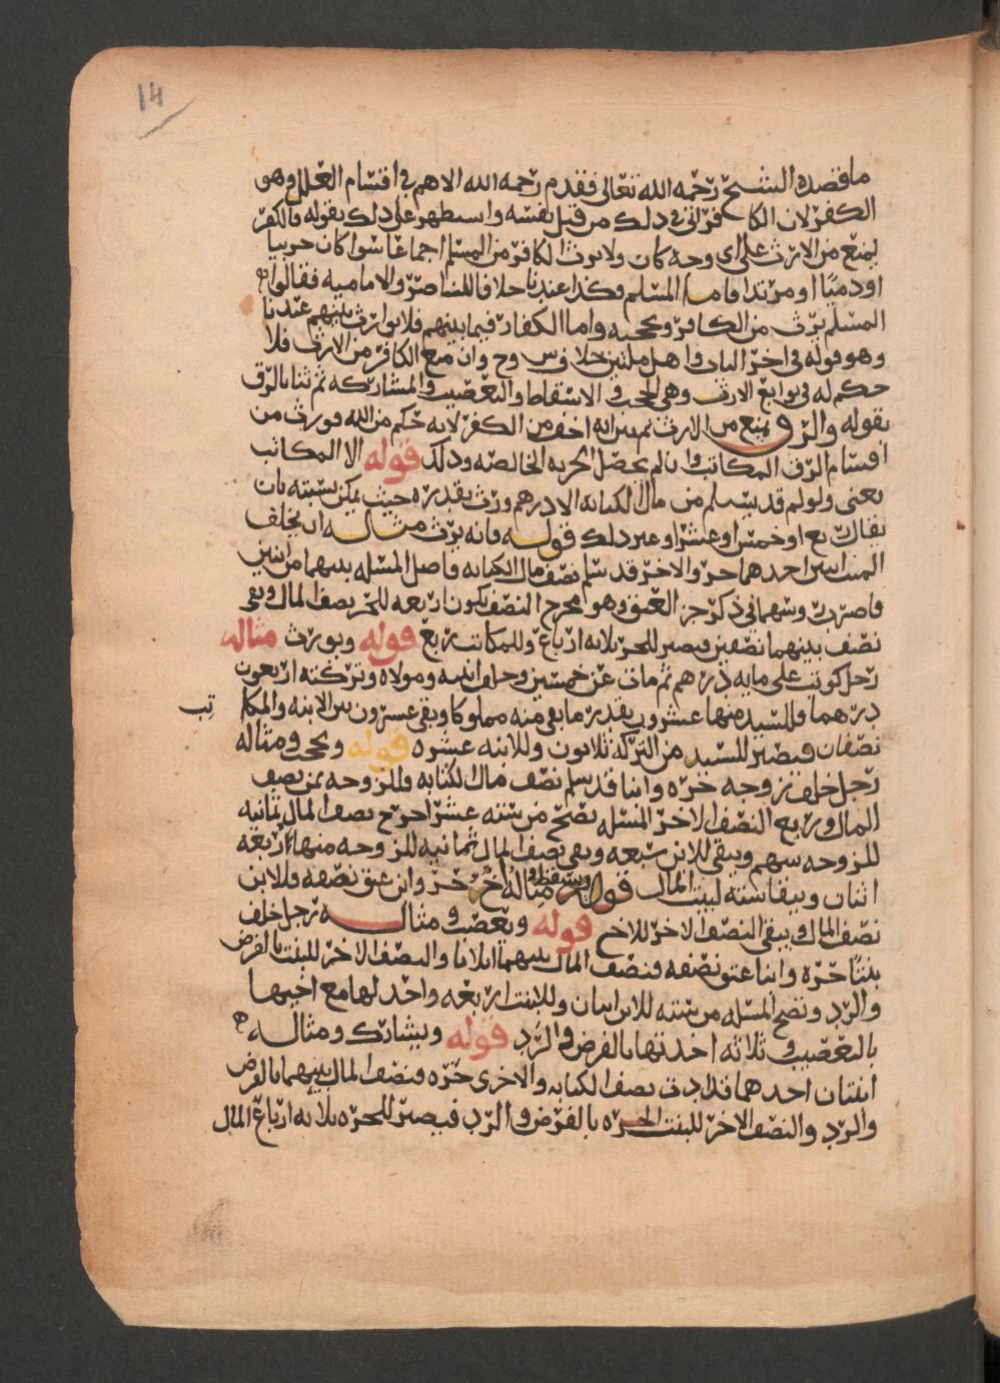 14
ما قصده الشيخ رحمه الله تعالى فقدم رحمه الله الاهم في اقسام العلل وهو
الكفر لان الكافر اتى ذلك من قبل نفسه واستظهر على ذلك بقوله فالكفر
يمنع من الارث على اي وجه كان ولا يورث الكافر من المسلم اجماعا سوا كان حربيا
او ذميا او مرتدا فاما المسلم فكذا عندنا خلافا للناصر والاماميه فقالوا
المسلم يرث من الكافر ويحجبه واما الكفار فيما بينهم فلا توارث بينهم عندنا
وهو قوله في اخر الباب واهل ملتين خلاف س وح وان منع الكافر من الارث فلا
حكم له في توابع الارث وهي الحجب والاسقاط والتعصيب والمشاركه ثم ثنا بالرق
بقوله والرق يمنع من الارث ثم بين انه اخف من الكفر لانه حكم من الله وورث من
اقسام الرق المكاتب وان لم يحصل الحريه الخالصه وذلك قوله الا المكاتب
يعني ولو لم قد يسلم من مال الكتابه الا درهم ورث بقدره حيث يمكن نسبته بان
يقال ربع او خمس او عشر او غير ذلك قوله فانه يرث مثاله ان يخلف
الميت ابنين احدهما حر والاخر قد سلم نصف مال الكتابه فاصل المسله بينهما من اثنين
فاضرب وسهماني ذكر جز العتق وهو مخرج النصف يكون اربعه للحر نصف المال وبقي
نصف بينهما نصفين فيصير للحر ثلاثه ارباع وللمكاتب ربع قوله ويورث مثاله
رجل كوتب على مايه درهم ثم مات عن خمسين وخلف ابنه ومولاه وتركته اربعون
درهما فللسيد منها عشرون بقدر ما بقي منه مملوكا وبقي عشرون بين الابنه والمكا
تب
نصفان فيصير للسيد من التركه ثلاثون وللابنه عشره قوله ويحجب ومثاله
رجل خلف زوجه حره وابنا قد سلم نصف مال الكتابه فللزوجه ثمن نصف
المال وربع النصف الاخر المسله تصح من سته عشر اخرج نصف المال ثمانيه
للزوجه سهم ويبقى للابن سبعه وبقي نصف المال ثمانيه للزوجه منها اربعه
اثنان ويبقا سته لبيت المال قوله ويسقط ومثاله اخ حر وابن عتق نصفه فللابن
نصف المال ويبقى النصف الاخر للاخ قوله ويعصب ومثاله رجل خلف
بنتا حره وابنا عتق نصفه فنصف المال بينهما اثلاثا والنصف الاخر للبنت بالفرض
والرد وتصح المسله من سته للابن اثنان وللبنت اربعه واحد لها مع اخيها
بالتعصيب وثلاثه اخذتها بالفرض والرد قوله ويشارك ومثاله
ابنتان احدهما قد ادت نصف الكتابه والاخرى حره فنصف المال بينهما بالفرض
والرد والنصف الاخر للبنت الحره بالفرض والرد فيصير للحره ثلاثه ارباع المال